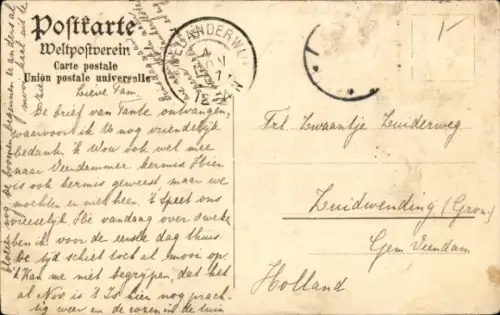 Postkarte
Weltpostverein
Carte postale
Union postale universelle
Lieve Tam.
De brief van Tante ontvangen,
waarvoor ik U nog vriendelijk
bedank. ik Wou ook wel mee
naar Veendammer kermis Hier
is ook kermis geweest, maar we
mochten er niet heen. 't Speet ons
vreeselijk. Hé vandaag over 3 weken
ben ik voor de eerste dag thuis.
De tijd schiet toch al mooi op.
'k Kan me niet begrijpen, dat het
al Nov. is 't Is hier nog prach-
tig weer en de rozen in de tuin
bloeien nog de boomen beginnen er anders al
mooi kaal uit te
zien
Frl. Zwaantje Zuiderweg
Zuidwending (Gron.)
Gem Veendam
Holland